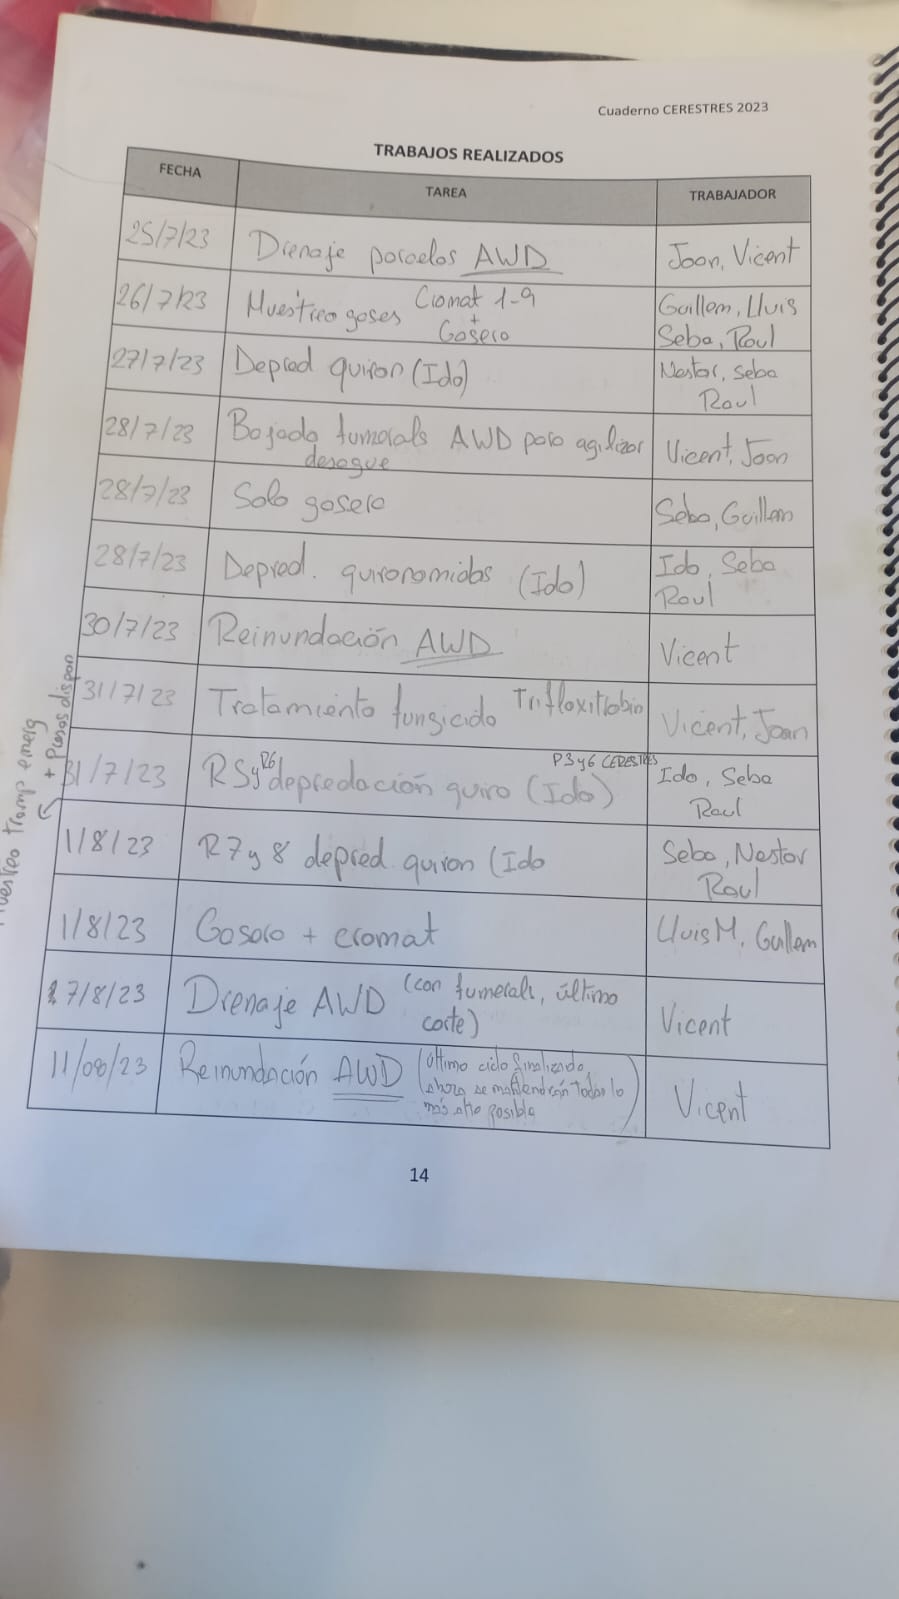 Cuaderno CERESTRES 2023
TRABAJOS REALIZADOS
FECHA TAREA TRABAJADOR
25/7/23 Drenaje parcelas AWD Joan, Vicent
26/7/23 Muestreo gases Cromat 1-9 Guillem, Lluis
+ Gasera Seba, Raul
27/7/23 Depred quiron (Ido) Nestor, Seba
Raul
28/7/23 Bajada fumerals AWD para agilizar Vicent, Joan
desague
28/7/23 Solo gasera Seba, Guillem
28/7/23 Depred. quironomidos (Ido) Ido, Seba
Raul
30/7/23 Reinundación AWD Vicent
31/7/23 Tratamiento fungicida Trifloxitrobin Vicent, Joan
P3y6 CERESTRES
31/7/23 R5yR6 depredación quiro (Ido) Ido, Seba
Raul
1/8/23 R7y8 depred quiron (Ido Seba, Nestor
Raul
1/8/23 Gasera + cromat Lluis M, Guillem
7/8/23 Drenaje AWD (con fumerals, último Vicent
corte)
11/08/23 Reinundación AWD (último ciclo finalizado, Vicent
ahora se mantendrán todas lo
más alto posible)
tramp emerg
+ Pusos dispon
14